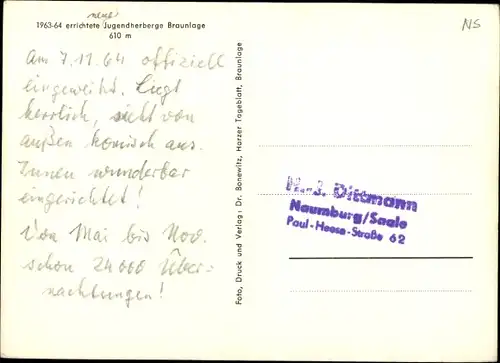 neue
1963-64 errichtete Jugendherberge Braunlage
610 m
NS
Am 7.11.64 offiziell
eingeweiht. Liegt
herrlich, sieht von
außen komisch aus.
Innen wunderbar
eingerichtet!
Von Mai bis Nov.
schon 24 000 Über-
nachtungen!
Foto, Druck und Verlag: Dr. Bonewitz, Harzer Tageblatt, Braunlage
H.-J. Dittmann
Naumburg/Saale
Paul-Heese-Straße 62